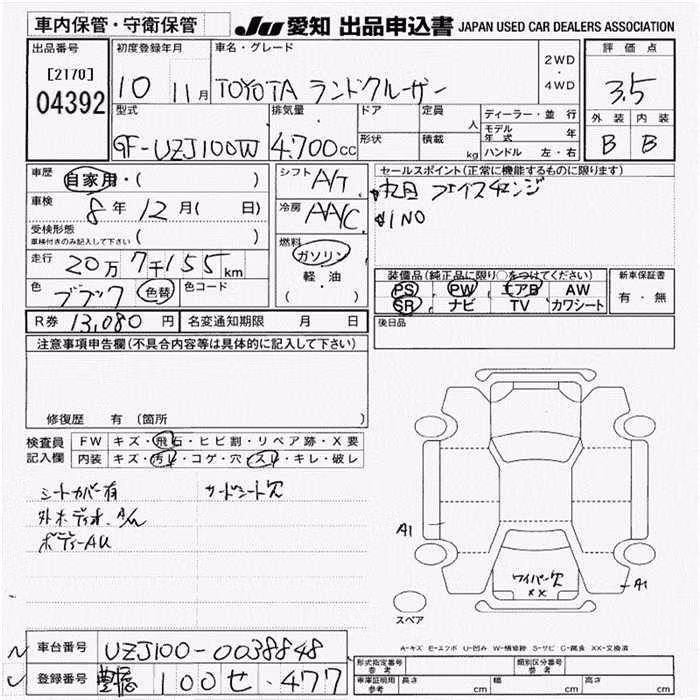 車内保管・守衛保管
JU 愛知 出品申込書 JAPAN USED CAR DEALERS ASSOCIATION
出品番号
[2170]
04392
初度登録年月
10 11月
車名・グレード
TOYOTA ランドクルーザー
2WD
・
4WD
評価点
3.5
外装 内装
B B
型式
GF-UZJ100W
排気量
4.700cc
ドア
形状
定員
人
積載
kg
ディーラー・並行
モデル年式 年
ハンドル 左・右
車歴 自家用・( )
車検 8年 12月( 日)
受検形態
車検付きのみ記入して下さい ( )
走行 20万7千155km
色 色替 色コード
シフト A/T
冷房 AAC
燃料
ガソリン
軽油
( )
セールスポイント(正常に機能するものに限ります)
フェイスチェンジ
1NO
装備品(純正品に限り○をつけてください)
PS PW エアB AW
SR ナビ TV カワシート
新車保証書
有・無
R券 13,080円 名変通知期限 月 日
後日品
注意事項申告欄(不具合内容等は具体的に記入して下さい)
修復歴 有 (箇所 )
検査員
記入欄
FW キズ・飛石・ヒビ割・リペア跡・X要
内装 キズ・汚レ・コゲ・穴・スレ・キレ・破レ
シートカバー有 サードシート欠
外オーディオ
A1
ワイパー欠
××
A1
スペア
A-キズ E-エクボ U-凹み W-補修跡 S-サビ C-腐食 XX-交換済
車台番号 UZJ100-0038848
登録番号 豊橋 100 せ・477
形式指定番号
参考
類別区分番号
参考
車庫証明用
参考
長さ cm
幅 cm
高さ cm